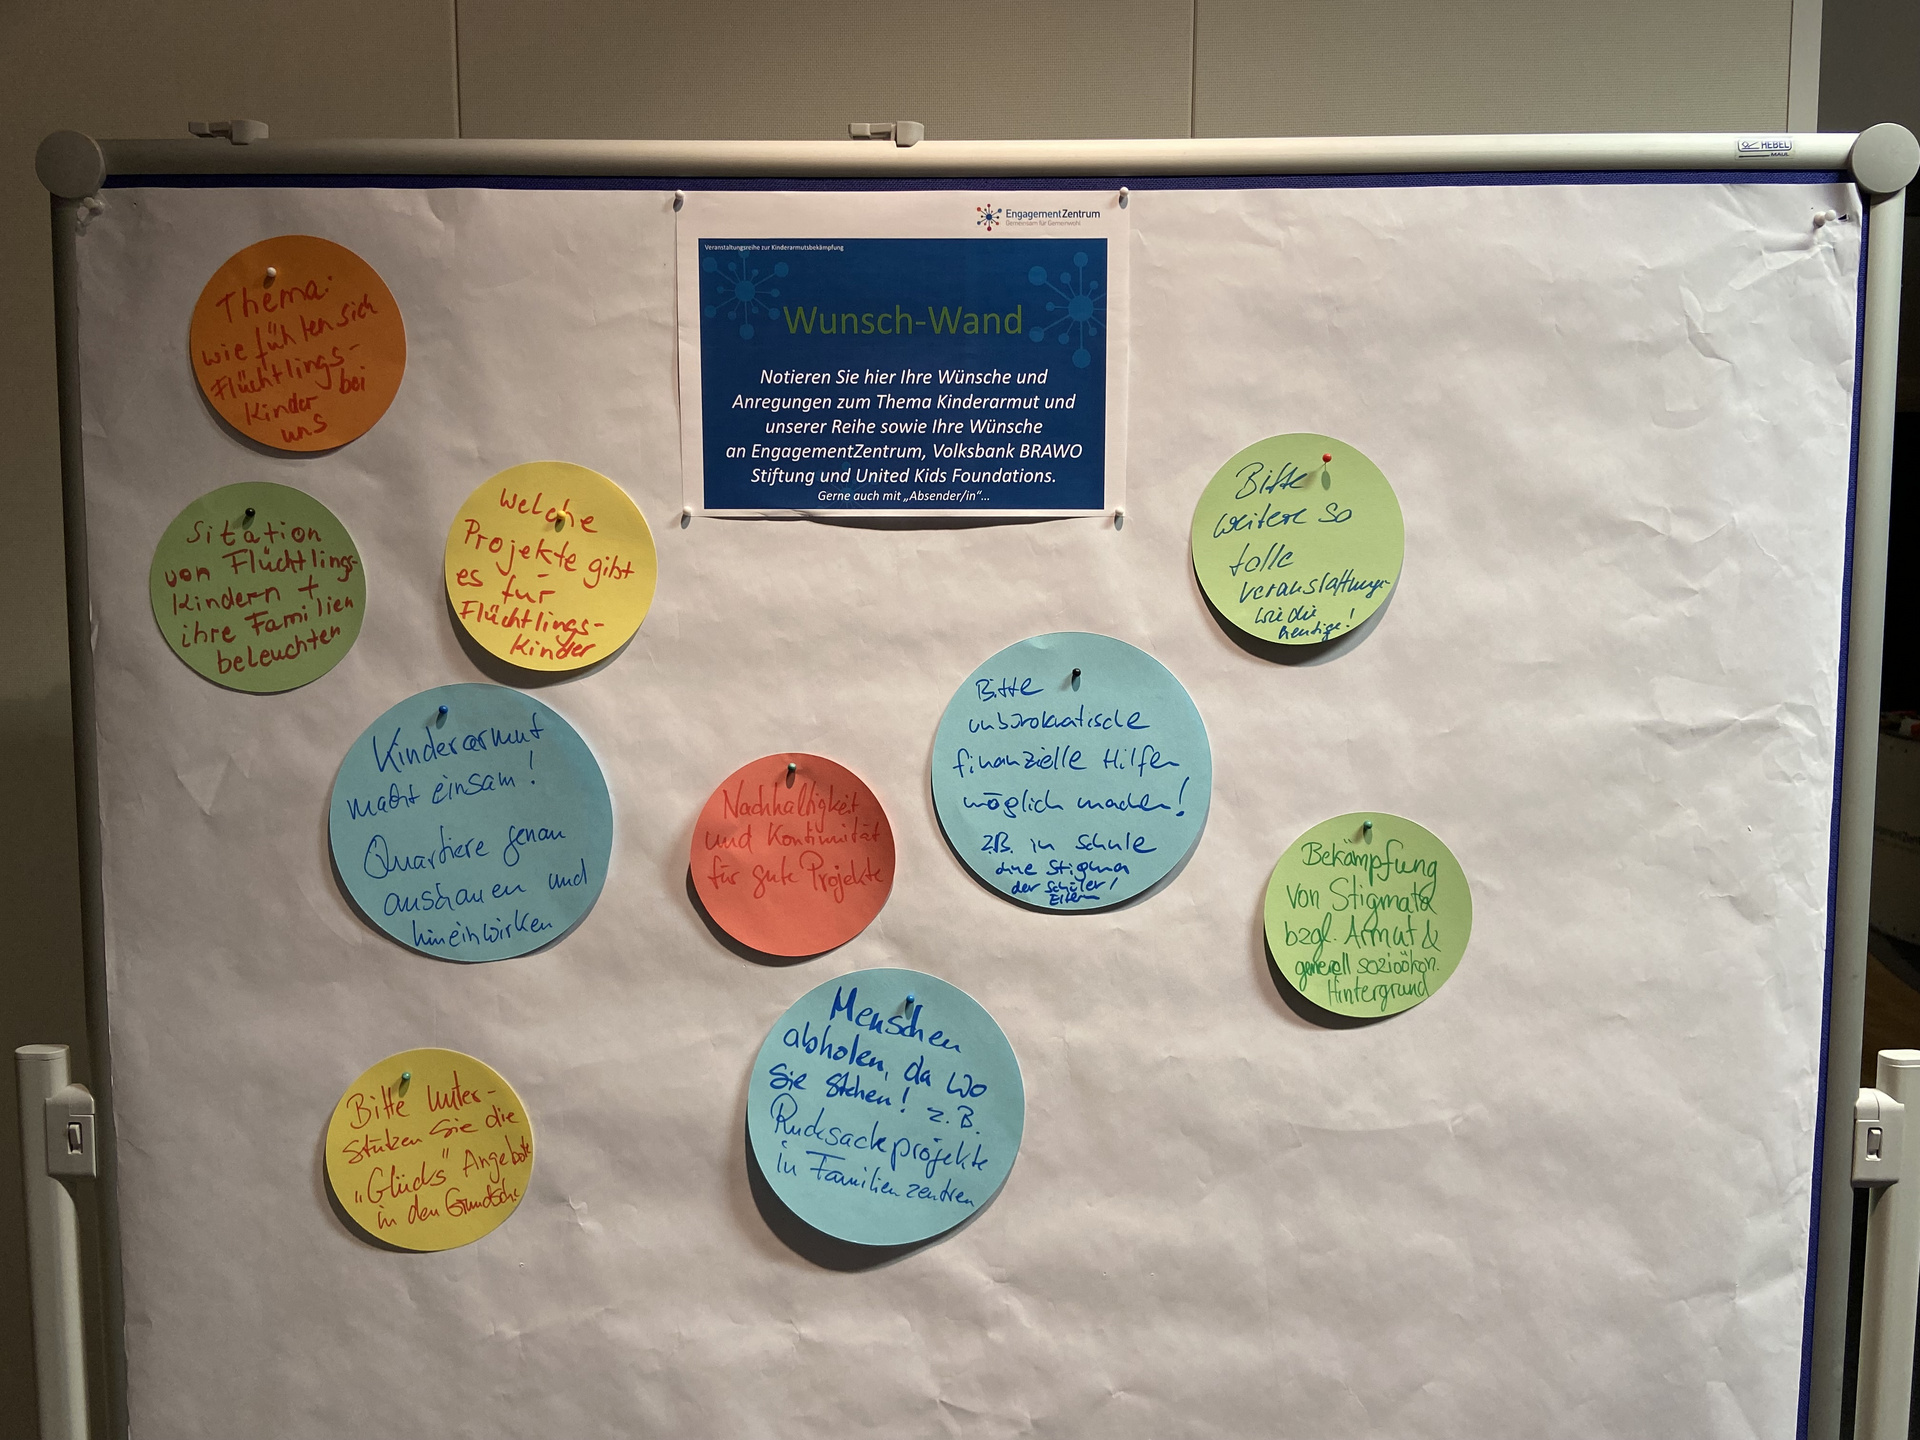 HEBEL
MAUL
EngagementZentrum
Gemeinsam für Gemeinwohl
Veranstaltungsreihe zur Kinderarmutsbekämpfung
Wunsch-Wand
Notieren Sie hier Ihre Wünsche und
Anregungen zum Thema Kinderarmut und
unserer Reihe sowie Ihre Wünsche
an EngagementZentrum, Volksbank BRAWO
Stiftung und United Kids Foundations.
Gerne auch mit „Absender/in“...
Thema:
wie fühlen sich
Flüchtlings-
Kinder bei
uns
Situation
von Flüchtlings-
kindern +
ihre Familien
beleuchten
Welche
Projekte gibt
es für
Flüchtlings-
kinder
Bitte
weitere so
tolle
Veranstaltungen
wie die
heutige!
Kinderarmut
macht einsam!
Quartiere genau
anschauen und
hineinwirken
Nachhaltigkeit
und Kontinuität
für gute Projekte
Bitte
unbürokratische
finanzielle Hilfen
möglich machen!
z.B. in Schule
ohne Stigma
der Schüler/
Eltern
Bekämpfung
von Stigmata
bzgl. Armut &
generell sozioökon.
Hintergrund
Bitte Unter-
stützen Sie die
„Glücks“ Angebote
in den Grundsch.
Menschen
abholen, da wo
Sie stehen! z.B.
Rucksackprojekte
in Familienzentren